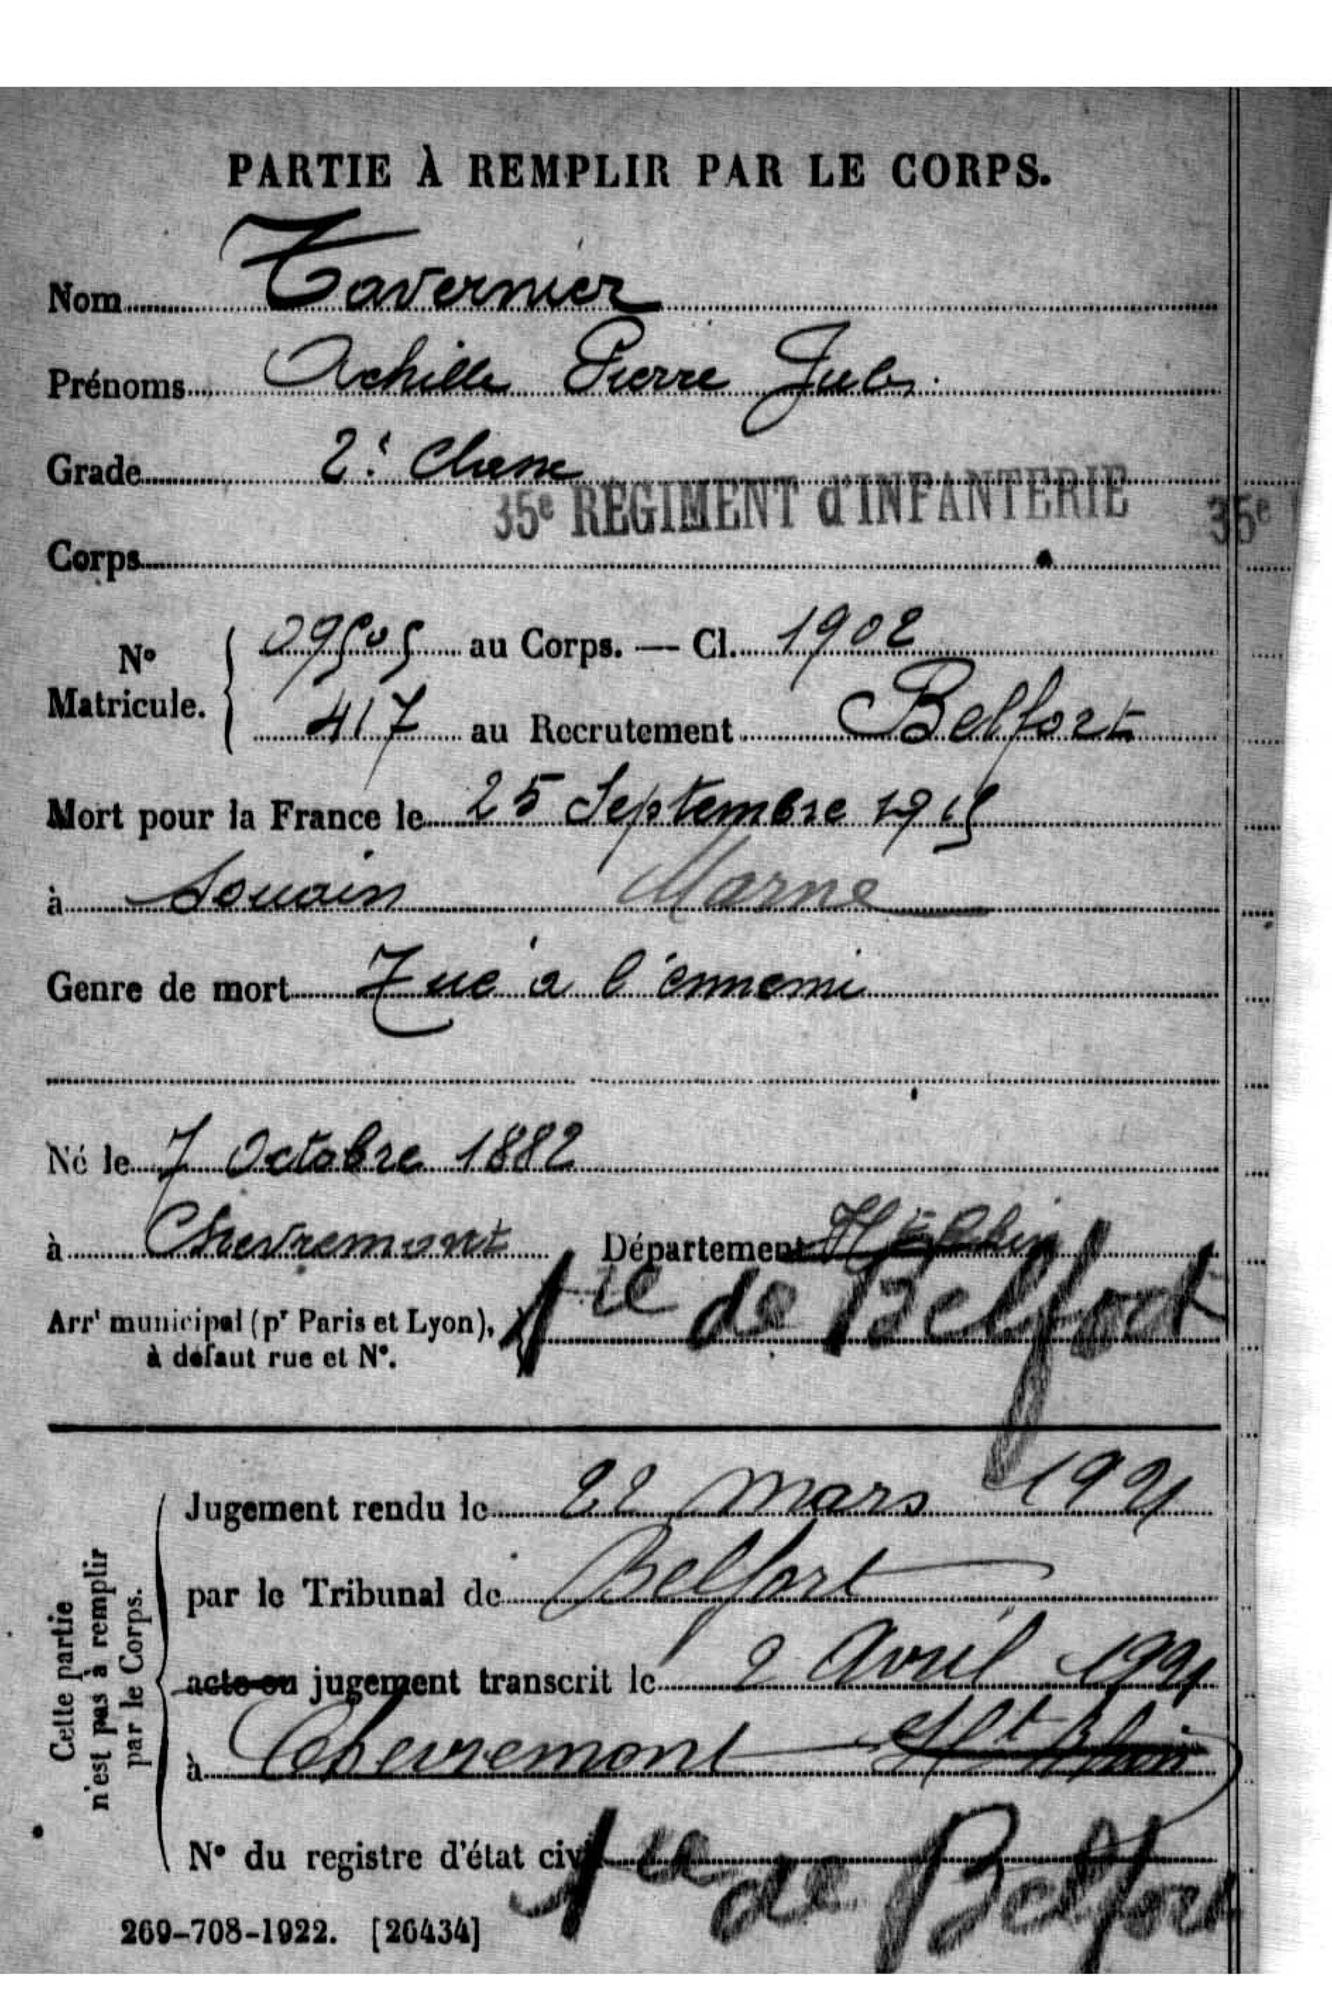 PARTIE À REMPLIR PAR LE CORPS.
Nom Tavernier
Prénoms Achille Pierre Jules
Grade 2e Classe
35e RÉGIMENT d'INFANTERIE 35e
Corps
No Matricule. { 09505 au Corps. — Cl. 1902
417 au Recrutement Belfort
Mort pour la France le 25 Septembre 1915
à Souain Marne
Genre de mort Tué à l'ennemi
Né le 7 Octobre 1882
à Chevremont Département Ht Rhin
Arrt municipal (pr Paris et Lyon), à défaut rue et No. Tre de Belfort
Cette partie n'est pas à remplir par le Corps.
Jugement rendu le 22 mars 1921
par le Tribunal de Belfort
acte ou jugement transcrit le 2 Avril 1921
à Chevremont Ht Rhin
No du registre d'état civil Tre de Belfort
269-708-1922. [26434]